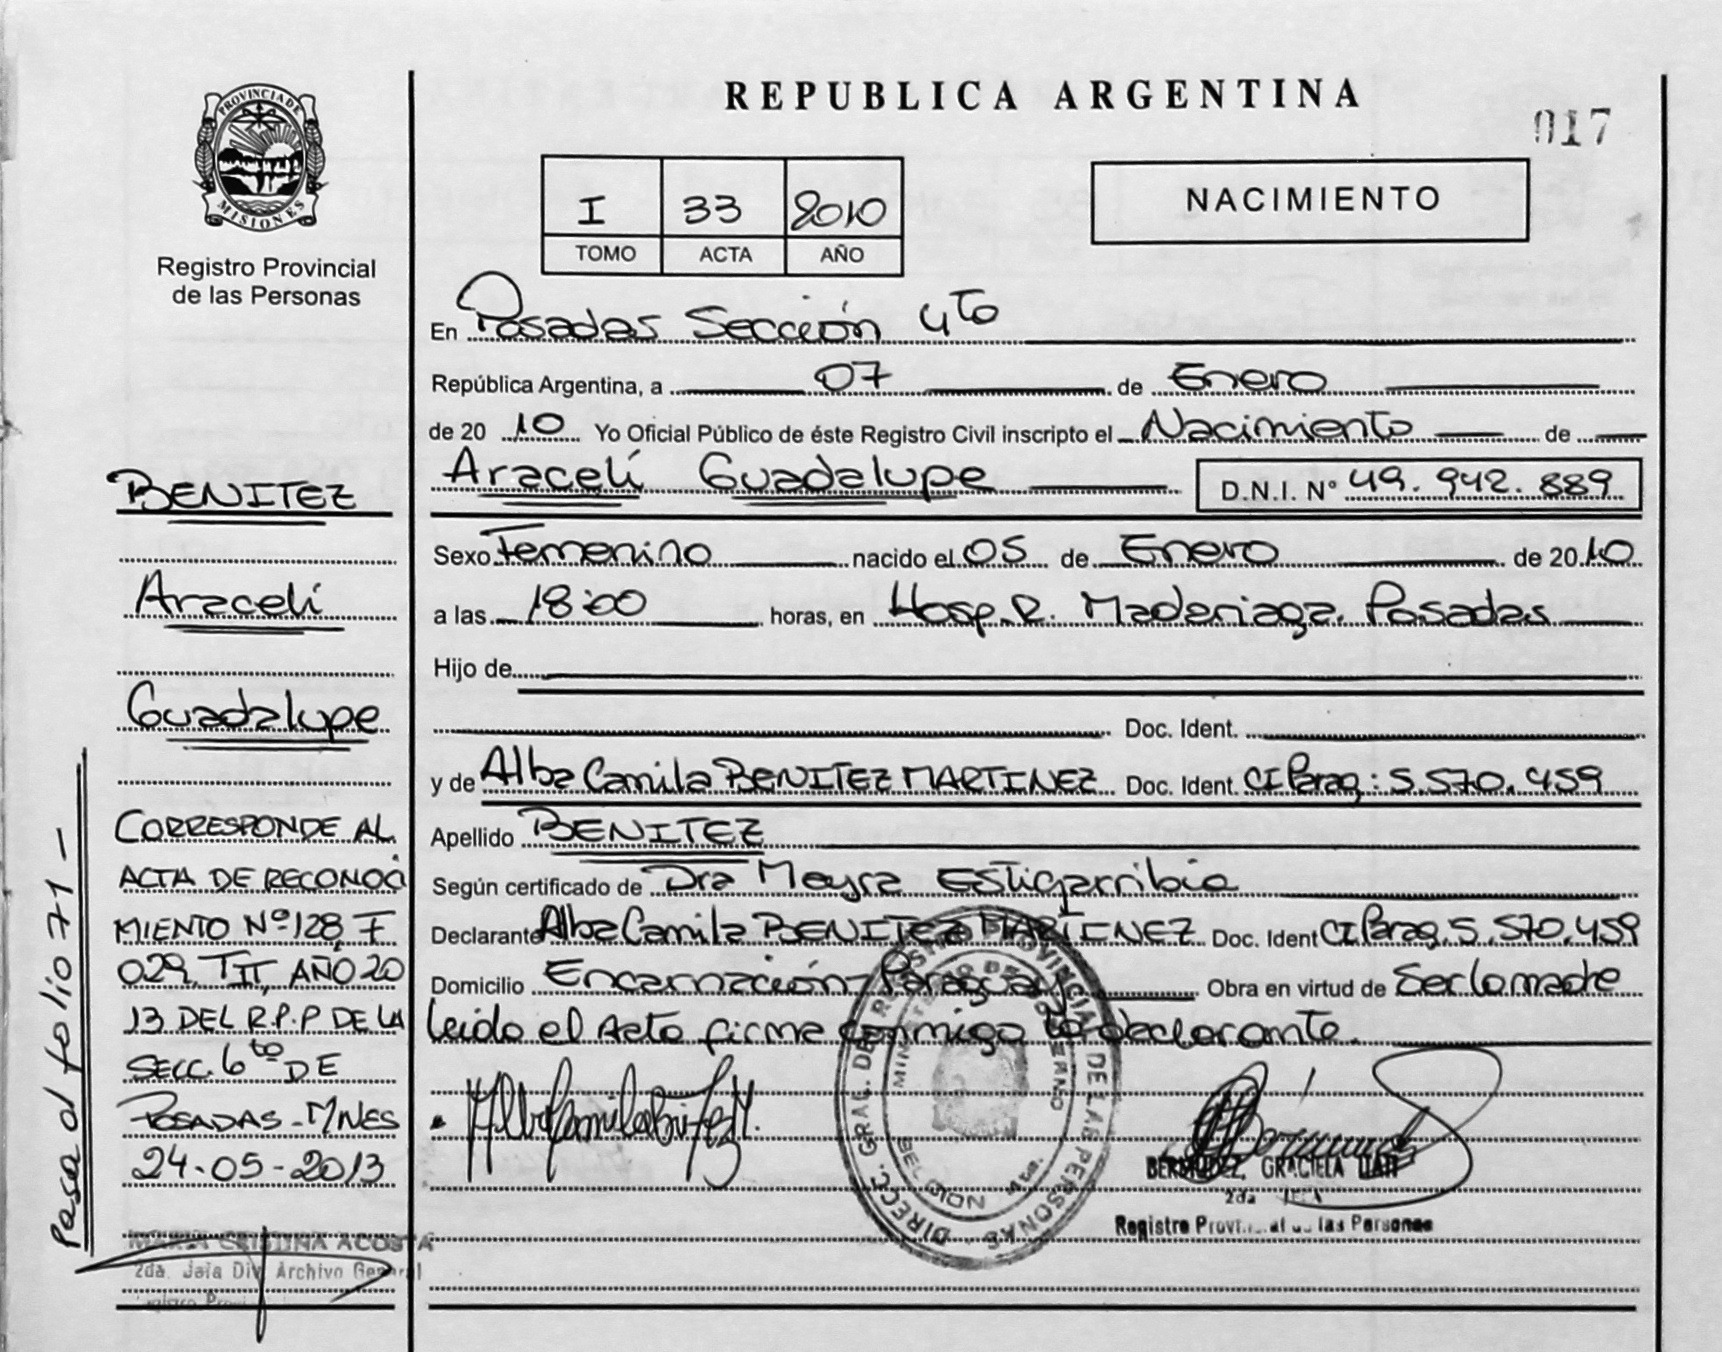 REPUBLICA ARGENTINA
017
PROVINCIA DE
MISIONES
Registro Provincial
de las Personas
I 33 2010
TOMO ACTA AÑO
NACIMIENTO
En Posadas Sección 4to
República Argentina, a 07 de Enero
de 2010 Yo Oficial Público de éste Registro Civil inscripto el Nacimiento de
Aracelí Guadalupe D.N.I. Nº 49.942.889
Sexo Femenino nacido el 05 de Enero de 2010
a las 18:00 horas, en Hosp. R. Madariaga. Posadas
Hijo de
Doc. Ident.
y de Alba Camila BENITEZ MARTINEZ Doc. Ident. CI Parag: 5.570.459
Apellido BENITEZ
Según certificado de Dra Mayra Estigarribia
Declarante Alba Camila BENITEZ MARTINEZ Doc. Ident CI Parag. 5.570.459
Domicilio Encarnación-Paraguay Obra en virtud de Ser la madre
leido el Acta firma conmigo la declarante.
DIRECC. GRAL. DEL REGISTRO PROVINCIAL DE LAS PERSONAS
MINISTERIO DE GOBIERNO
4ta.
BERMUDEZ, GRACIELA ITATI
2da
Registro Provincial de las Personas
BENITEZ
Aracelí
Guadalupe
CORRESPONDE AL
ACTA DE RECONOCI
MIENTO Nº 128, F
029, TII, AÑO 20
13 DEL R.P.P DE LA
SECC. 6to DE
POSADAS - M/NES
24-05-2013
MARIA CRISTINA ACOSTA
2da. Jefa Div. Archivo General
Pasa al folio 71 -